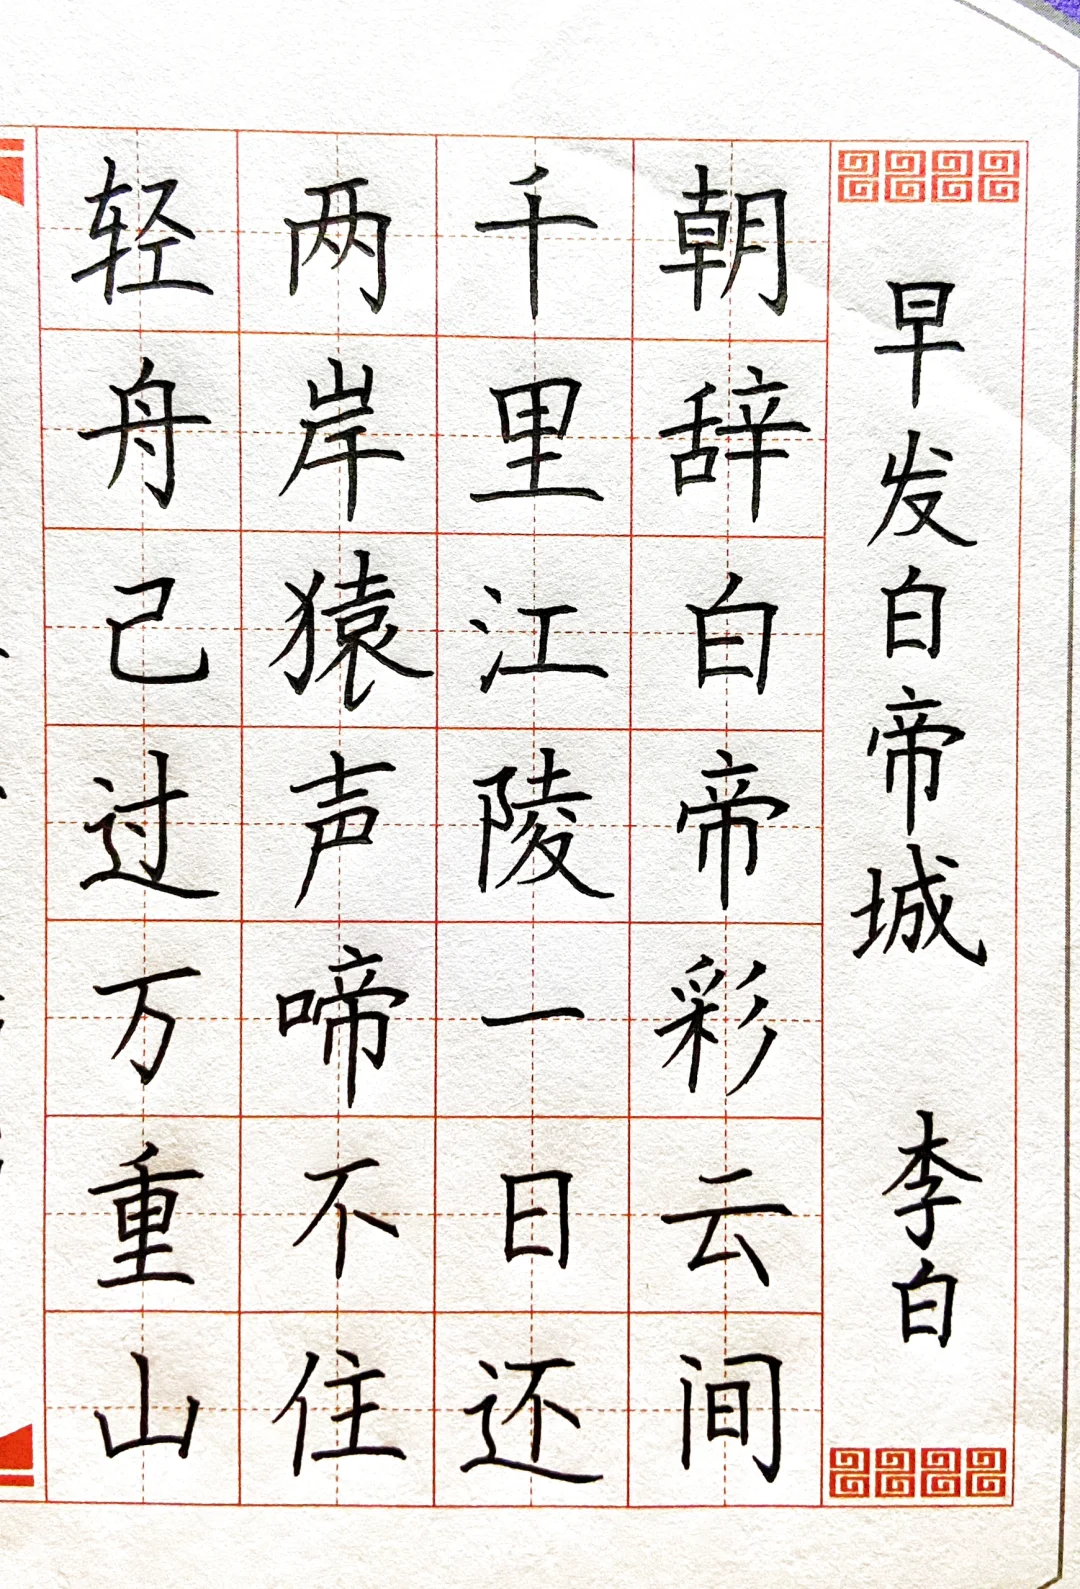 早发白帝城 李白
朝辞白帝彩云间
千里江陵一日还
两岸猿声啼不住
轻舟己过万重山